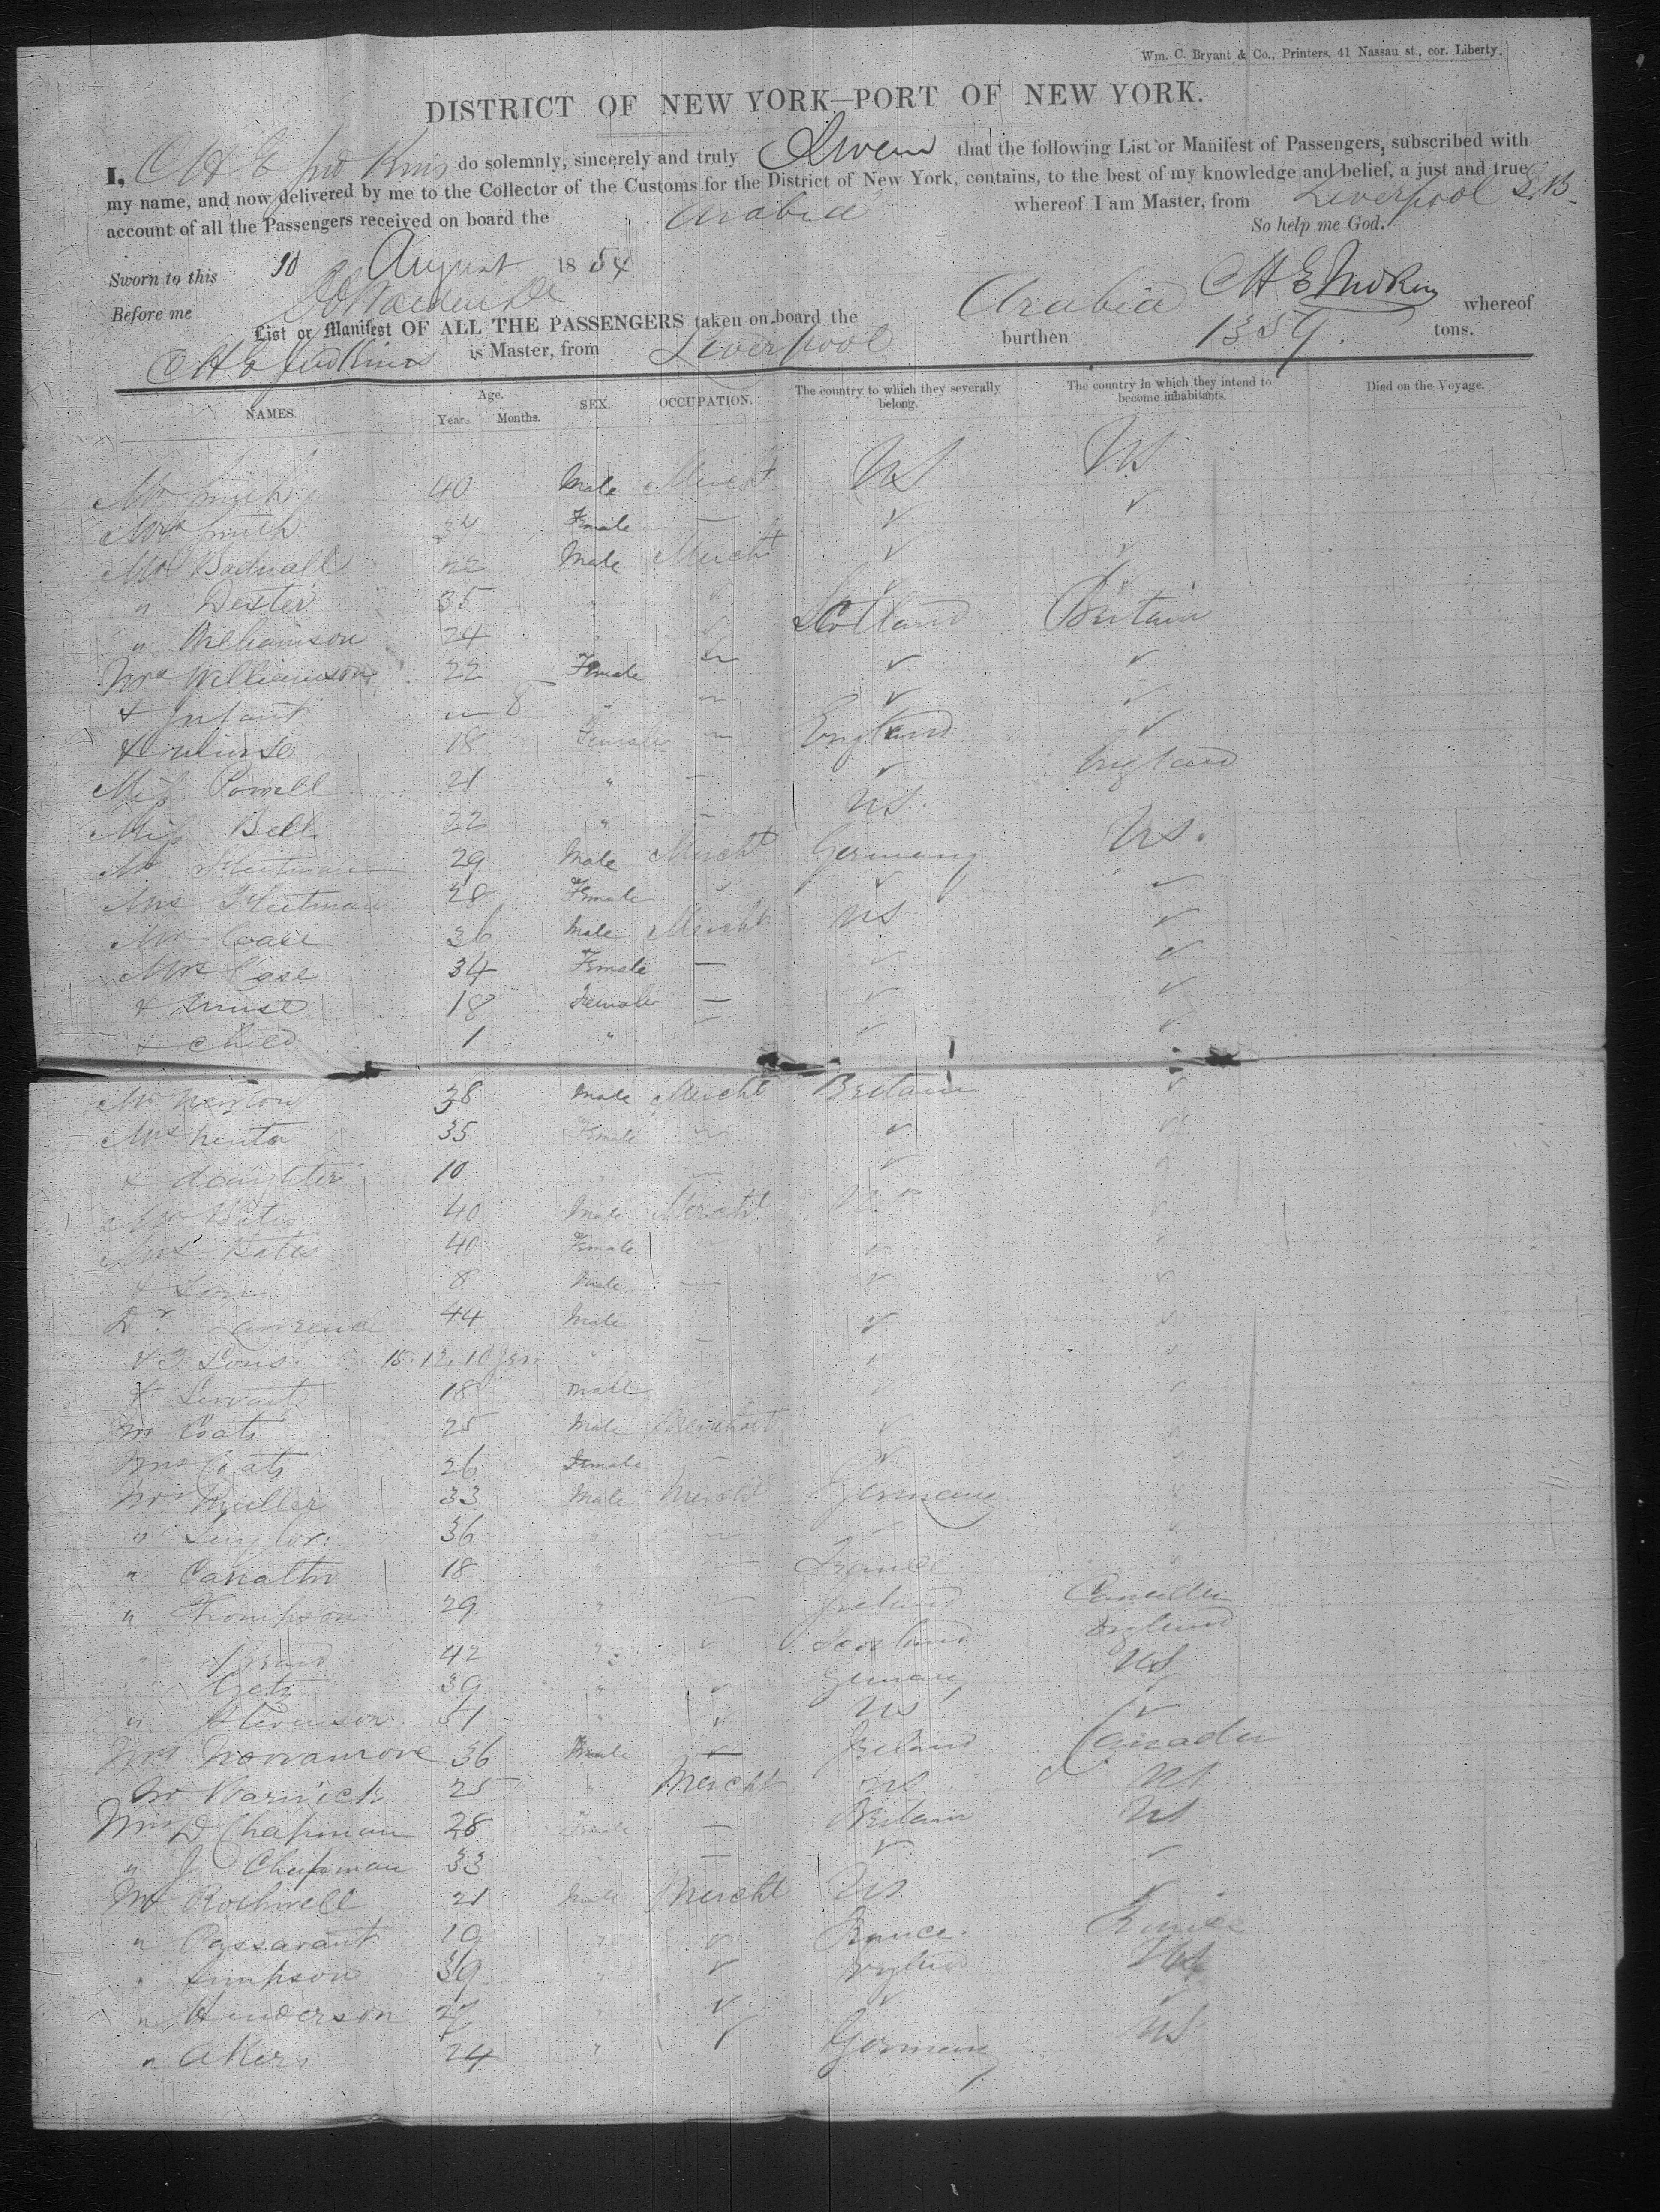 Wm. C. Bryant & Co., Printers, 41 Nassau st., cor. Liberty.
DISTRICT OF NEW YORK—PORT OF NEW YORK.
I, C H E Judkins do solemnly, sincerely and truly Swear that the following List or Manifest of Passengers, subscribed with
my name, and now delivered by me to the Collector of the Customs for the District of New York, contains, to the best of my knowledge and belief, a just and true
account of all the Passengers received on board the Arabia whereof I am Master, from Liverpool
So help me God.
Sworn to this 10 August 1854
Before me
C H E Judkins
List or Manifest OF ALL THE PASSENGERS taken on board the Arabia whereof
C H E Judkins is Master, from Liverpool burthen tons.
NAMES. Age. Years. Months. SEX. OCCUPATION. The country to which they severally belong. The country in which they intend to become inhabitants. Died on the Voyage.
Mr Smith 40 Male Mercht US US
Mrs Smith Female — ✓ ✓
Mr Male Mercht ✓ ✓
" Dexter 35 " ✓ ✓ ✓
" Williamson 24 " ✓ Scotland Britain
Mrs Williamson 22 Female — ✓ ✓
& Infant — 8 " — ✓ ✓
& nurse 18 Female — England ✓
Miss Powell 21 " — ✓ England
Miss Bell 22 " — US
Mr 29 Male Mercht Germany US.
Mrs 28 Female ✓ ✓
Mr Case 36 Male Mercht US ✓
Mrs Case 34 Female — ✓ ✓
& nurse 18 Female — ✓ ✓
& child 1 " — ✓ ✓
Mr Newton 38 Male Mercht Britain ✓
Mrs Newton 35 Female — ✓ ✓
& daughter 10 " — ✓ ✓
Mr Bates 40 Male Mercht ✓
Mrs Bates 40 Female — ✓ ✓
& Son 8 Male — ✓ ✓
Dr. Lawrence 44 Male ✓ ✓
& 3 Sons. 15. 12. 10 " — ✓ ✓
& Servant 18 Male ✓ ✓
Mr Coats 25 Male Merchant ✓ ✓
Mrs Coats 26 Female — ✓ ✓
Mr Muller 33 Male Mercht Germany ✓
" 36 " — ✓ ✓
" 18 " — France ✓
" Thompson 29 " — Ireland Canada
" 42 " ✓ Scotland England
" Getz 39 " ✓ Germany US
" Stevenson " ✓ US ✓
Mrs 36 Female — Ireland Canada
Mr Warnick 25 " Mercht US US
Mrs D Chapman 28 Female — Britain US
" J Chapman 33 — ✓ ✓
Mr Rothwell 21 Male Mercht US ✓
" Passavant 19 " ✓ France. France
" Simpson 39 " ✓ England US
" Henderson 27 " ✓ ✓ ✓
" Akers 24 " ✓ Germany US